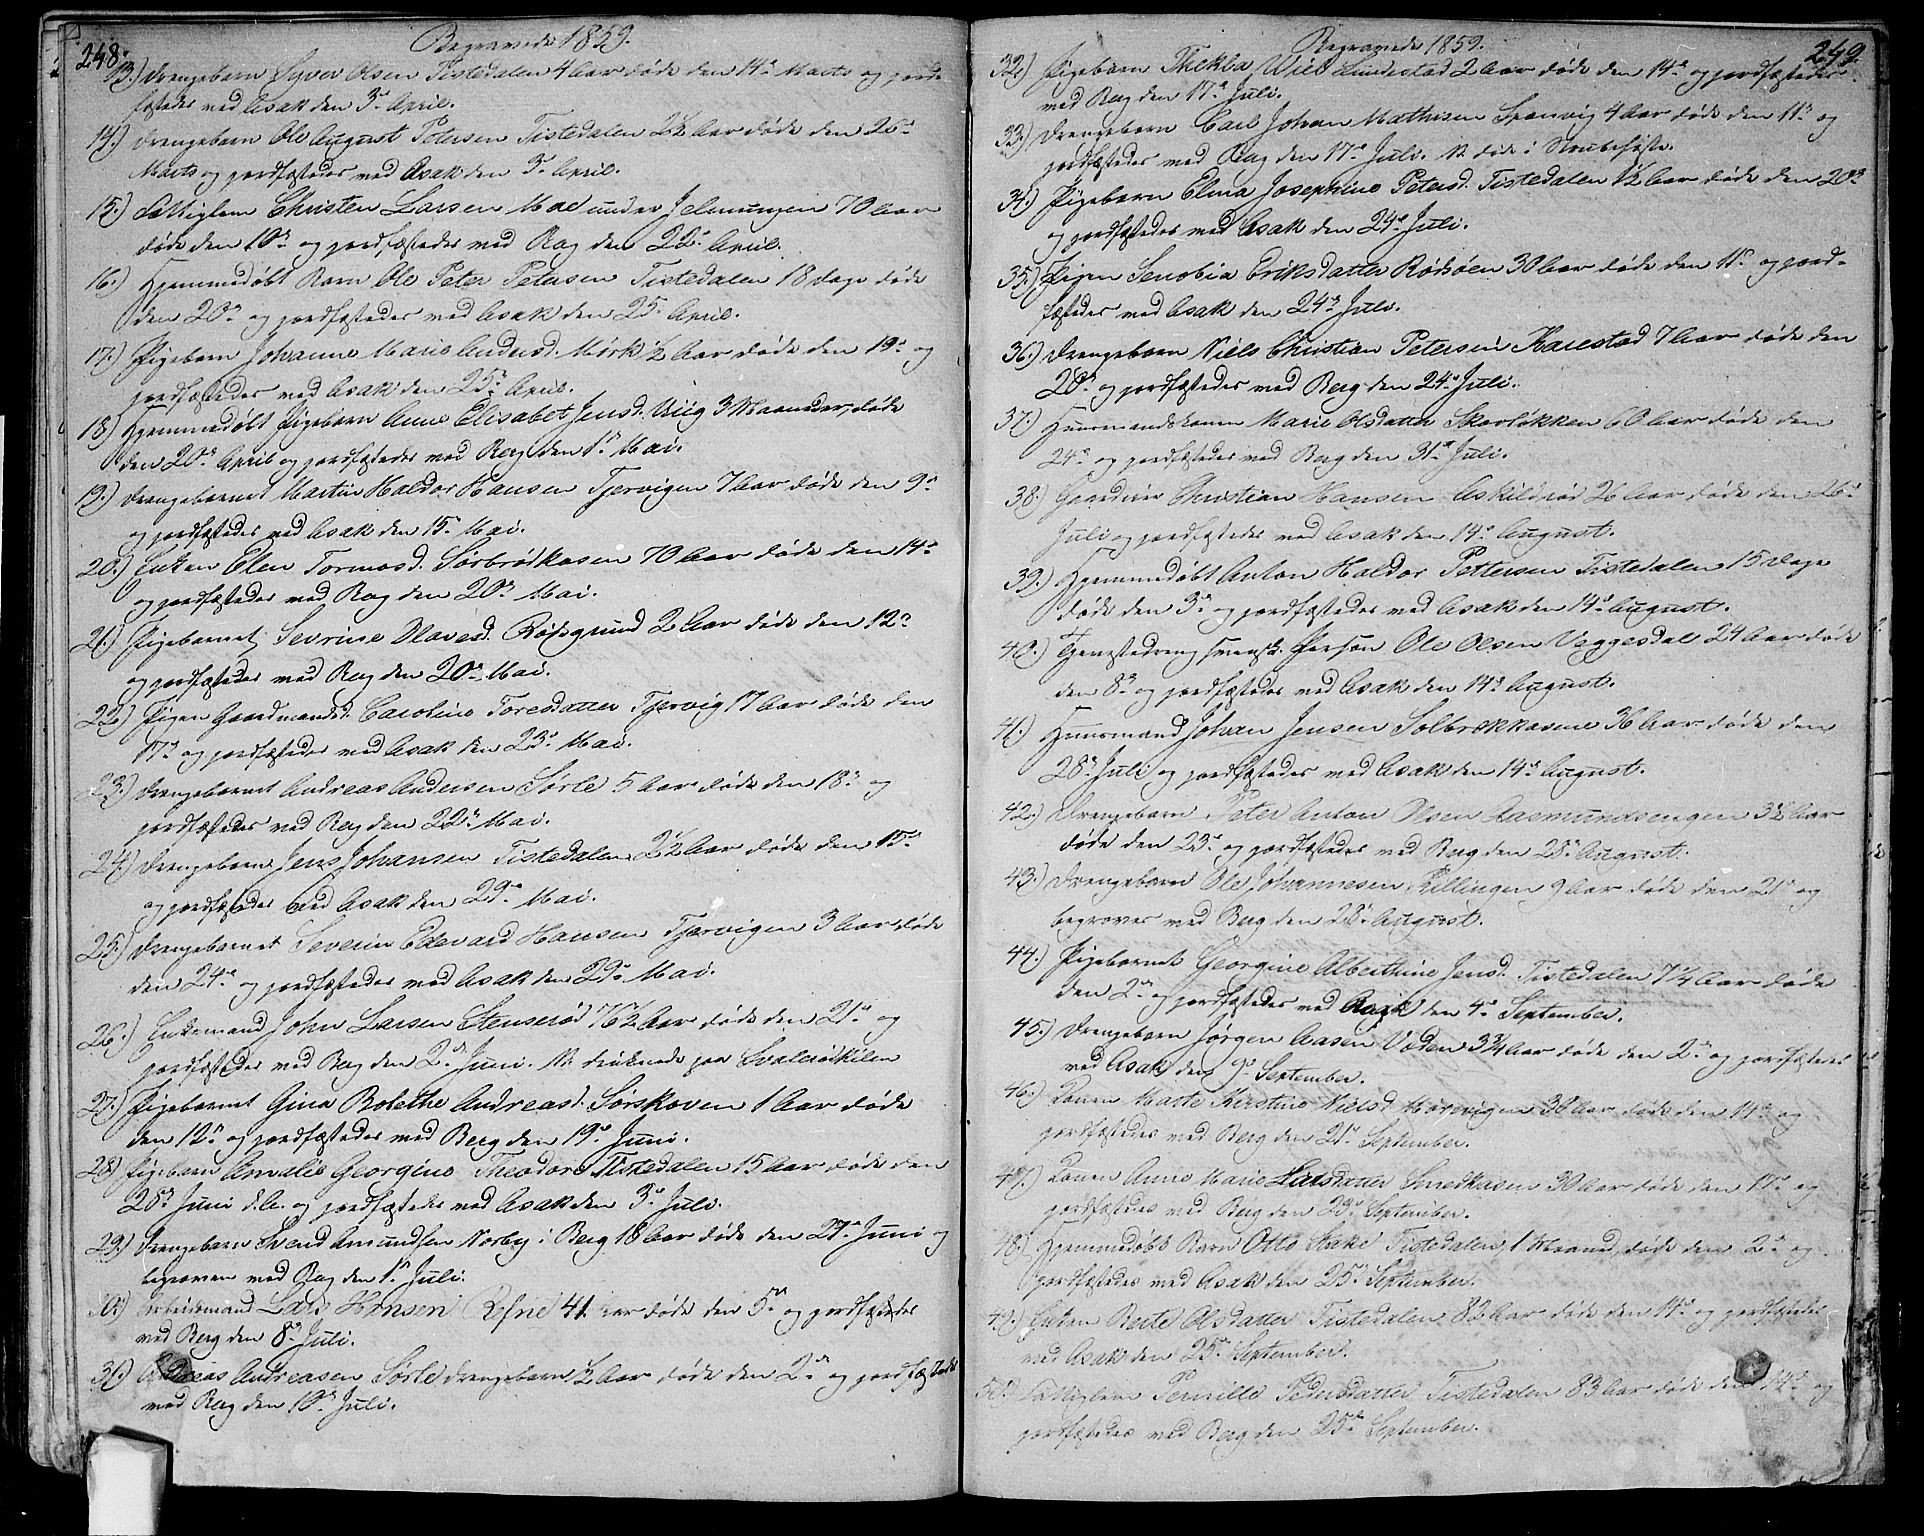 248.
Begravede 1859.
13.) Drengebarn Syver Olsen Tistedalen 4 Aar døde den 14de Marts og jord-
fæstedes ved Asak den 3de April.
14.) Drengebarn Ole August Petersen Tistedalen 2½ Aar døde den 26de
Marts og jordfæstedes ved Asak den 3de April.
15.) Fattiglem Christen Larsen Moe under 70 Aar
døde den 10de og jordfæstedes ved Berg den 22de April.
16.) Hjemmedøbt Barn Ole Peter Petersen Tistedalen 18 Dage døde
den 20de og jordfæstedes ved Asak den 25de April.
17.) Pigebarn Johanne Marie Andersd. Mørk ½ Aar døde den 19de og
jordfæstedes ved Asak den 25de April.
18) Hjemmedøbt Pigebarn Anne Elisabet Jensd. Viig 3 Maaneder, døde
den 20de April og jordfæstedes ved Berg den 1ste Mai.
19.) Drengebarnet Martin Haldor Hansen Tjervigen 7 Aar døde den 9de
og jordfæstedes ved Asak den 15de Mai.
20.) Enken Elen Tormosd. Sørbrødkasen 70 Aar døde den 14de
og jordfæstedes ved Berg den 20de Mai.
21.) Pigebarnet Sevrine Olavesd. Røsgrund 2 Aar døde den 12te
og jordfæstedes ved Berg den 20de Mai.
22.) Pigen Gaardmandsd. Caroline Toresdatter Tjervig 17 Aar døde den
17de og jordfæstedes ved Asak den 23de Mai.
23.) Drengebarnet Andreas Andersen Sørle 5 Aar døde den 18de og
jordfæstedes ved Berg den 22de Mai.
24.) Drengebarn Jens Johansen Tistedalen 2½ Aar døde den 15de
og jordfæstedes ved Asak den 29de Mai.
25.) Drengebarnet Severin Edevard Hansen Tjervigen 3 Aar døde
den 24de og jordfæstedes ved Asak den 29de Mai.
26.) Enkemand John Larsen Stenserød 76½ Aar døde den 21de og
jordfæstedes ved Berg den 2den Juni. N. druknede paa Svalerødkilen
27.) Pigebarnet Gina Bolethe Andreasd. Sørskoven 1 Aar døde
den 12te og jordfæstedes ved Berg den 19de Juni.
28) Pigebarn Amalie Georgine Theodore Tistedalen 15 Aar døde den
25de Juni d.A. og jordfæstedes ved Asak den 3de Juli.
29.) Drengebarn Svend Amundsen Norby i Berg 18 Aar døde den 27de Juni og
begraven ved Berg den 1ste Juli.
30) Arbeidsmand Lars Hansen Refne 41 Aar døde den 5te og jordfæstedes
ved Berg den 8de Juli.
31.) Andreas Andreasen Sørle Drengebarn ½ Aar døde den 2den og jordfæstedes
ved Berg den 10de Juli.
Begravede 1859.
249.
32.) Pigebarn Thekla Wiel Lundestad 2 Aar døde den 14de og jordfæstedes
ved Berg den 17de Juli.
33.) Drengebarn Carl Johan Mathisen Sponvig 4 Aar døde den 11te og
jordfæstedes ved Berg den 17de Juli. N. døde i Strubehoste.
34.) Pigebarn Elma Josephine Petersd. Tistedalen 1½ Aar døde den 20de
og jordfæstedes ved Asak den 24de Juli.
35.) Pigen Senobia Eriksdatter Rødsøen 30 Aar døde den 11te og jord-
fæstedes ved Asak den 24de Juli.
36.) Drengebarn Niels Christian Petersen Karestad 7 Aar døde den
20de og jordfæstedes ved Berg den 24de Juli.
37.) Huusmandskonen Marie Olsdatter Skovløkken 60 Aar døde den
24de og jordfæstedes ved Berg den 31te Juli.
38.) Christian Hansen Askildrød 26 Aar døde den 26de
Juli og jordfæstedes ved Asak den 14de August.
39.) Hjemmedøbt Anton Haldor Pettersen Tistedalen 15 Dage
døde den 3de og jordfæstedes ved Asak den 14de August.
40.) Tjenestedreng svensk Person Ole Olsen Veggesdal 24 Aar døde
den 8de og jordfæstedes ved Asak den 14de August.
41.) Huusmand Johan Jensen Solbrekkasene 36 Aar døde den
28de Juli og jordfæstedes ved Asak den 14de August.
42.) Drengebarn Peter Anton Olsen Rasmundsengen 3½ Aar
døde den 23de og jordfæstedes ved Berg den 28de August.
43.) Drengebarn Ole Johannesen Killingen 9 Aar døde den 21de og
begraves ved Berg den 28de August.
44.) Pigebarnet Georgine Alberthine Jensd. Tistedalen 7¼ Aar døde
den 2den og jordfæstedes ved Asak den 4de September.
45.) Drengebarn Jørgen Aasen Veden 3¾ Aar døde den 2den og jordfæstedes
ved Asak den 9de September.
46.) Konen Marte Kirstine Nielsd. 38 Aar døde den 14de og
jordfæstedes ved Berg den 21de September.
47.) Konen Anne Marie Larsdatter Smedkasen 30 Aar døde den 17de og
jordfæstedes ved Berg den 23de September.
48.) Hjemmedøbt Barn Otto Stake Tistedalen, 1 Maaned, døde den 2den og
jordfæstedes ved Asak den 25de September.
49.) Enken Berte Olsdatter Tistedalen 82 Aar døde den 17de og jordfæstedes
ved Asak den 25de September.
50.) Fattiglem Pernille Pedersdatter Tistedalen 83 Aar døde den 14de og
jordfæstedes ved Berg den 25de September.